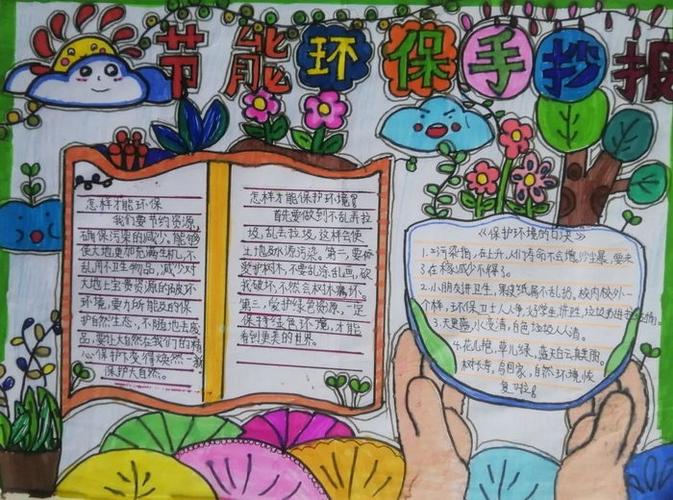 节能环保手抄报
怎样才能环保
我们要节约资源,
确保污染的减少,能够
使大地更加充满生机,不
乱用不卫生物品,减少对
大地上宝贵资源的破坏
环境,要力所能及的保
护自然生态,不随地去废
品,要让大自然在我们的精
心保护下变得焕然一新
保护大自然。
怎样才能保护环境
首先要做到不乱丢垃
圾,乱丢垃圾,这样会使
土地及水源污染。第二,要做
爱护树木,不要乱涂乱画,破
我破坏,不然会树木
第三,爱护绿色资源,一定
保持绿色环境,才能
看到更美的世界。
《保护环境的口决》
1.污染指,在上升,人们寿命不会增,沙尘暴,要来
3.在格减少不得了。
2.小朋友讲卫生,果皮纸屑不乱扔。校内校外一
个样,环保卫士人人争,好学生讲卫,垃圾
3.天更蓝,水变清,白色垃圾人人清。
4.花儿艳,草儿绿,蓝天白云真美丽。
树长寿,鸟回家,自然环境恢
复啦